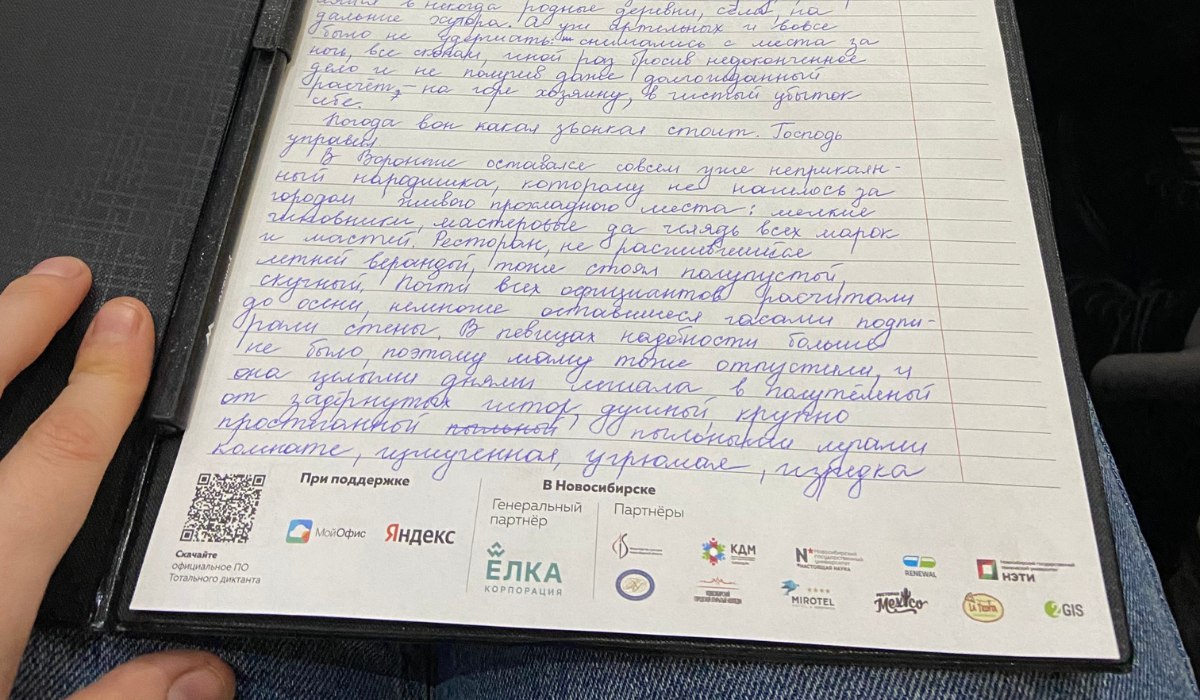 в некогда родные деревни, сёла, на
дальние хутора. А уж артельных и вовсе
было не удержать: снимались с места за
ночь, все скопом, иной раз бросив недоконченное
дело и не получив даже долгожданный
расчёт, – на горе хозяину, в чистый убыток
себе.
Погода вон какая звонкая стоит. Господь
управил.
В Воронеже остался совсем уже неприкаян-
ный народишка, которому не нашлось за
городом живого прохладного места: мелкие
чиновники, мастеровые да челядь всех марок
и мастей. Ресторан, не расшившийся
летней верандой, тоже стоял полупустой,
скучный. Почти всех официантов рассчитали
до осени, немногие оставшиеся часами подпи-
рали стены. В певицах надобности больше
не было, поэтому маму тоже отпустили, и
она целыми днями лежала в полутёмной
от задёрнутых штор, душной, крупно
простёганной пыльной пыльными лучами
комнате, измученная, угрюмая, изредка
При поддержке
МойОфис
Яндекс
Скачайте
официальное ПО
Тотального диктанта
В Новосибирске
Генеральный
партнёр
ЁЛКА
КОРПОРАЦИЯ
Партнёры
КДМ
Новосибирский
государственный
университет
*НАСТОЯЩАЯ НАУКА
RENEWAL
Новосибирский государственный
технический университет
НЭТИ
НОВОСИБИРСКИЙ
ГОРОДСКОЙ ОТКРЫТЫЙ КОЛЛЕДЖ
MIROTEL
РЕСТОРАН
Mexico
2GIS